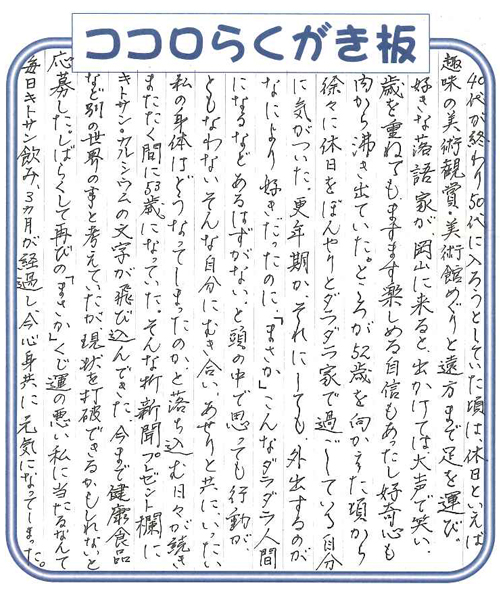 ココロらくがき板
40代が終わり、50代に入ろうとしていた頃は、休日といえば
趣味の美術観賞・美術館めぐりと遠方まで足を運び。
好きな落語家が岡山に来ると、出かけては大声で笑い、
歳を重ねてもますます楽しめる自信もあったし好奇心も
内から沸き出ていた。ところが52歳を向かえた頃から
徐々に休日をぼんやりとダラダラ家で過ごしている自分
に気がついた。更年期か、それにしても、外出するのが
なにより好きだったのに「まさか」こんなダラダラ人間
になるなどあるはずがない、と頭の中で思っても行動が
ともなわない。そんな自分にむき合い、あせりと共にいったい
私の身体はどうなってしまったのか、と落ち込む日々が続き
またたく間に53歳になっていた。そんな折、新聞プレゼント欄に
キトサン・カルシウムの文字が飛び込んできた。今まで健康食品
など別の世界の事と考えていたが、現状を打破できるかもしれないと
応募した。しばらくして再びの「まさか」くじ運の悪い私に当たるなんて
毎日キトサン飲み、3カ月が経過し、今心身共に元気になってしまった。